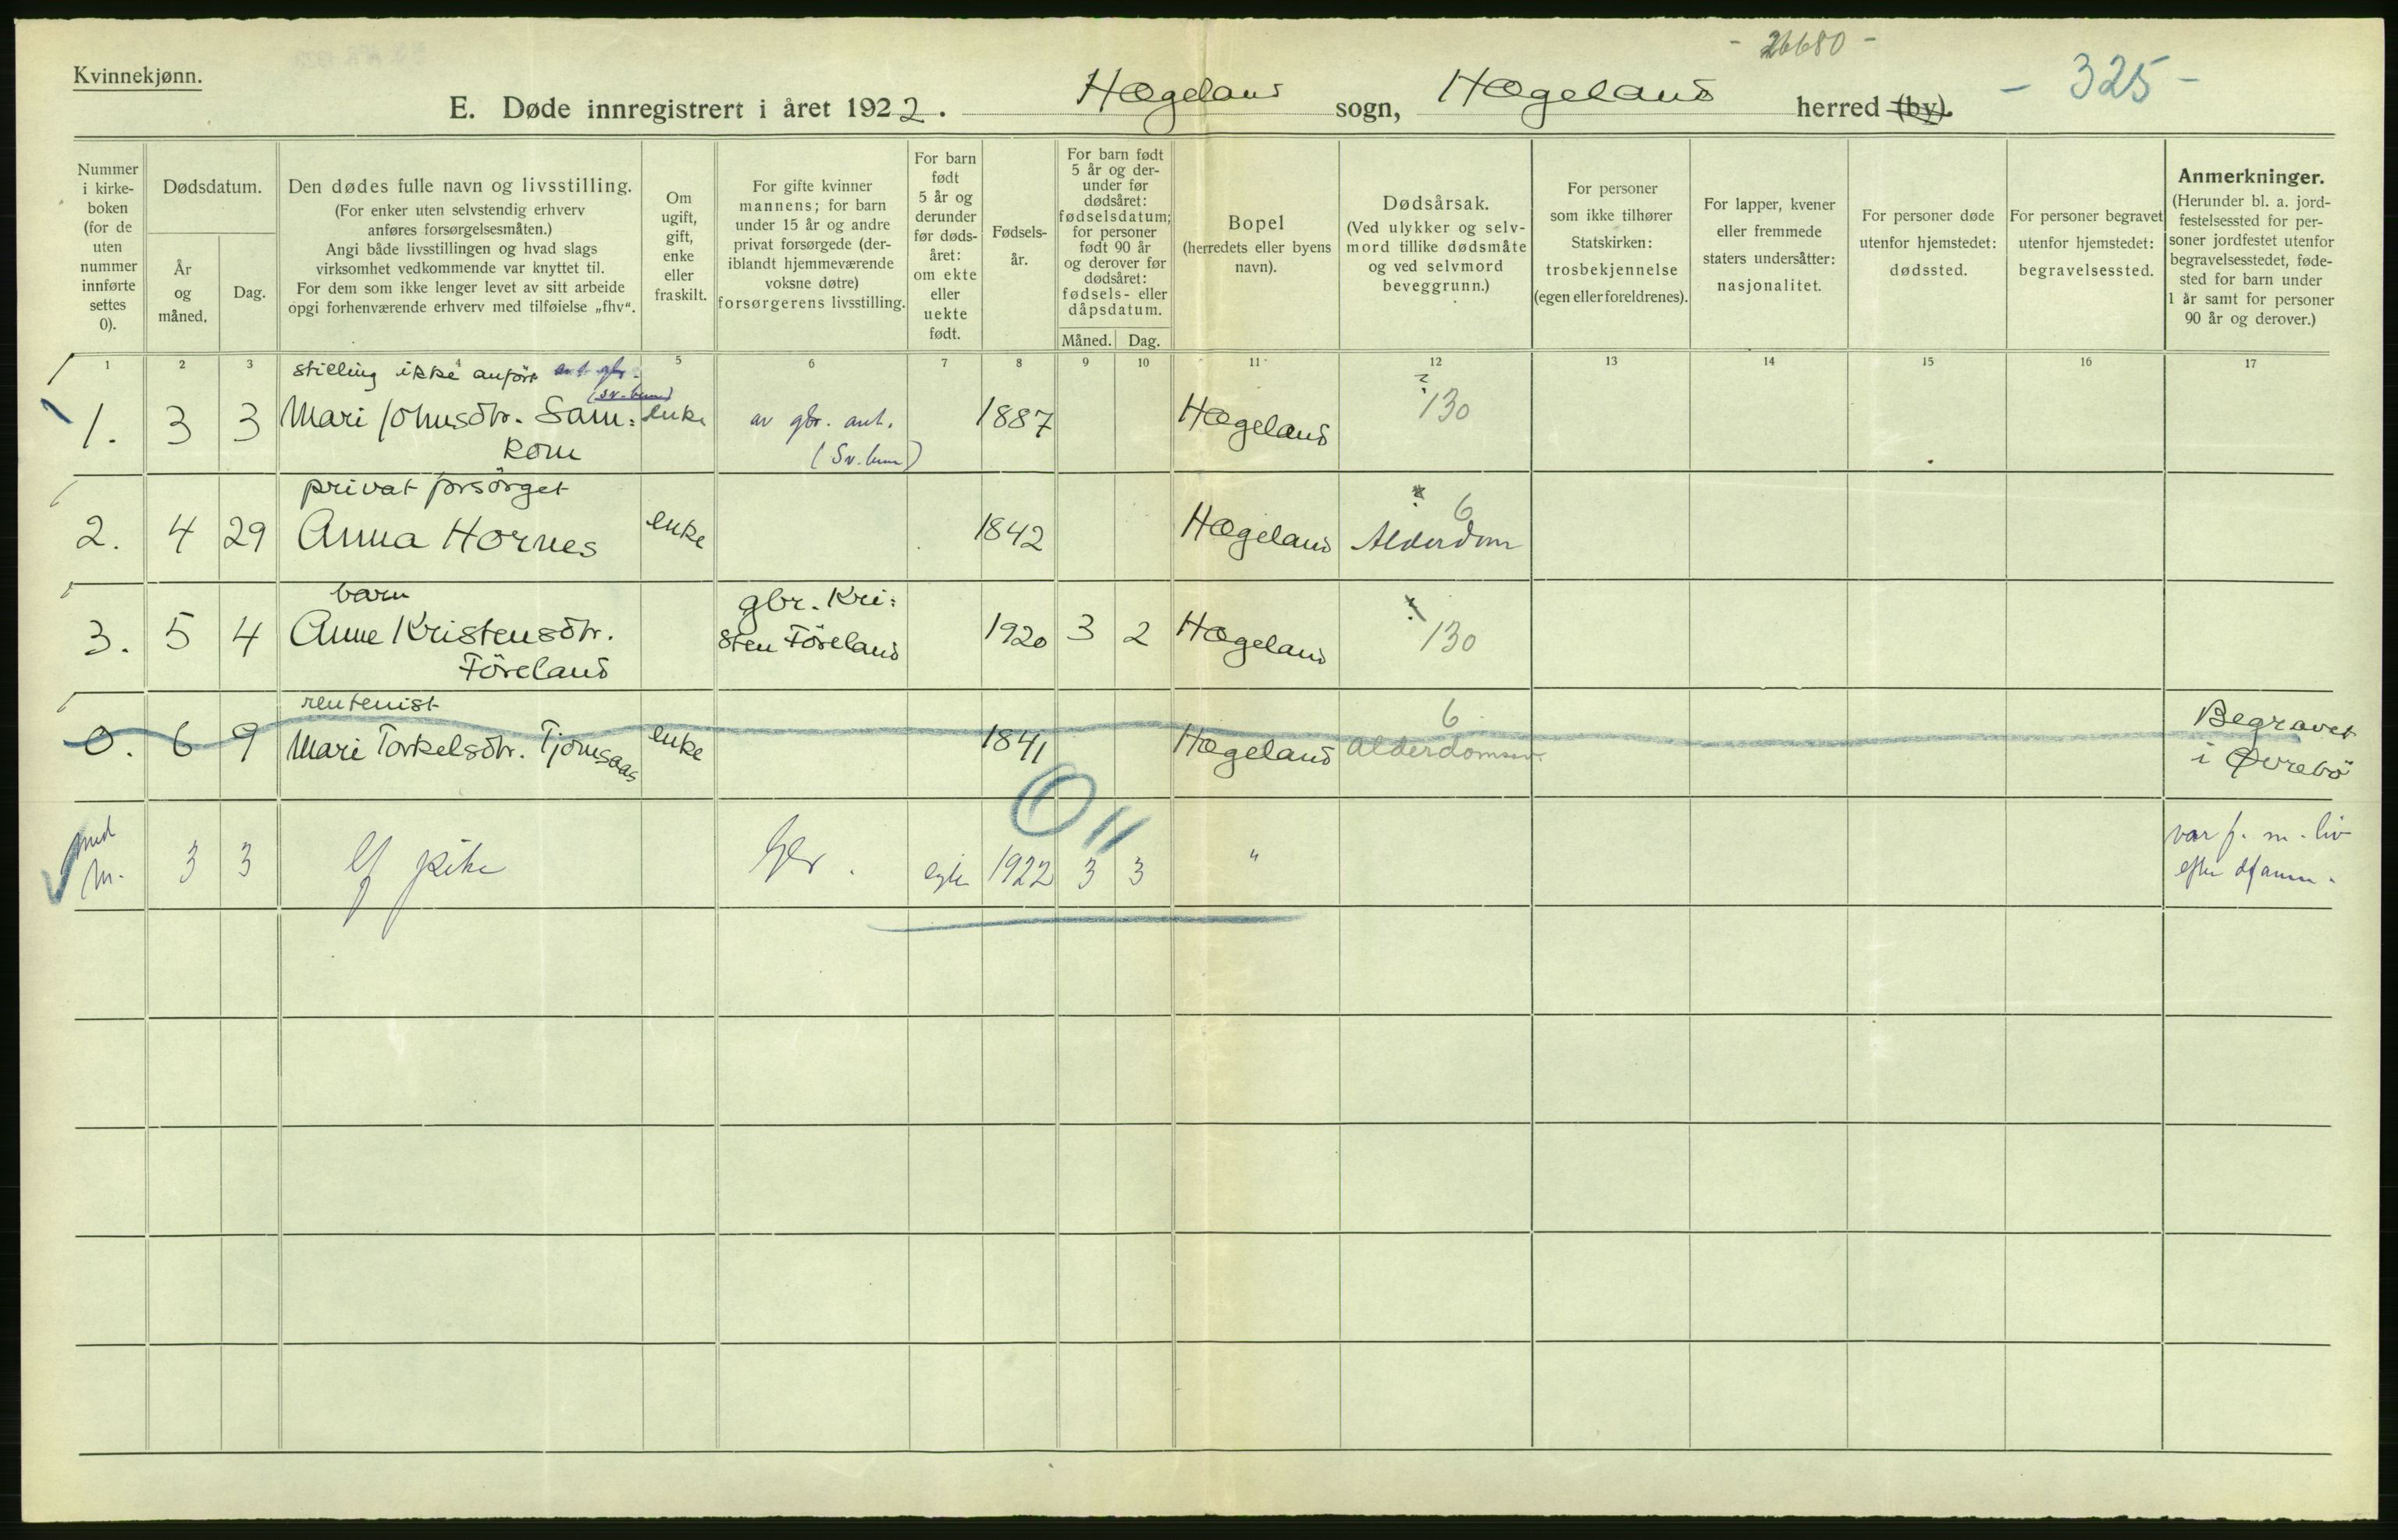 - 26680 -
Kvinnekjønn.
- 325 -
E. Døde innregistrert i året 1922. Hægeland sogn, Hægeland herred (by).
Nummer
i kirke-
boken
(for de
uten
nummer
innførte
settes
0).
Dødsdatum.
År
og
måned.
Dag.
Den dødes fulle navn og livsstilling.
(For enker uten selvstendig erhverv
anføres forsørgelsesmåten.)
Angi både livsstillingen og hvad slags
virksomhet vedkommende var knyttet til.
For dem som ikke lenger levet av sitt arbeide
opgi forhenværende erhverv med tilføielse „fhv“.
Om
ugift,
gift,
enke
eller
fraskilt.
For gifte kvinner
mannens; for barn
under 15 år og andre
privat forsørgede (der-
iblandt hjemmeværende
voksne døtre)
forsørgerens livsstilling.
For barn
født
5 år og
derunder
før døds-
året:
om ekte
eller
uekte
født.
Fødsels-
år.
For barn født
5 år og der-
under før
dødsåret:
fødselsdatum;
for personer
født 90 år
og derover før
dødsåret:
fødsels- eller
dåpsdatum.
Måned. Dag.
Bopel
(herredets eller byens
navn).
Dødsårsak.
(Ved ulykker og selv-
mord tillike dødsmåte
og ved selvmord
beveggrunn.)
For personer
som ikke tilhører
Statskirken:
trosbekjennelse
(egen eller foreldrenes).
For lapper, kvener
eller fremmede
staters undersåtter:
nasjonalitet.
For personer døde
utenfor hjemstedet:
dødssted.
For personer begravet
utenfor hjemstedet:
begravelsessted.
Anmerkninger.
(Herunder bl. a. jord-
festelsessted for per-
soner jordfestet utenfor
begravelsesstedet, føde-
sted for barn under
1 år samt for personer
90 år og derover.)
1 2 3 4 5 6 7 8 9 10 11 12 13 14 15 16 17
stilling ikke anført
1. 3 3 Mari Johnsdtr. Sam= enke av gbr. ant. 1887 Hægeland ? 130
kom
privat forsörget
2. 4 29 Anna Hornes enke 1842 Hægeland 6 Alderdom
barn
gbr. Kri=
3. 5 4 Anne Kristensdtr. sten Föreland 1920 3 2 Hægeland 130
Föreland
rentenist
0. 6 9 Mari Torkelsdtr. Tjomsaas enke 1841 Hægeland 6 Begravet
i Øvrebö
3 3 pike egte 1922 3 3 "
var f. m. liv